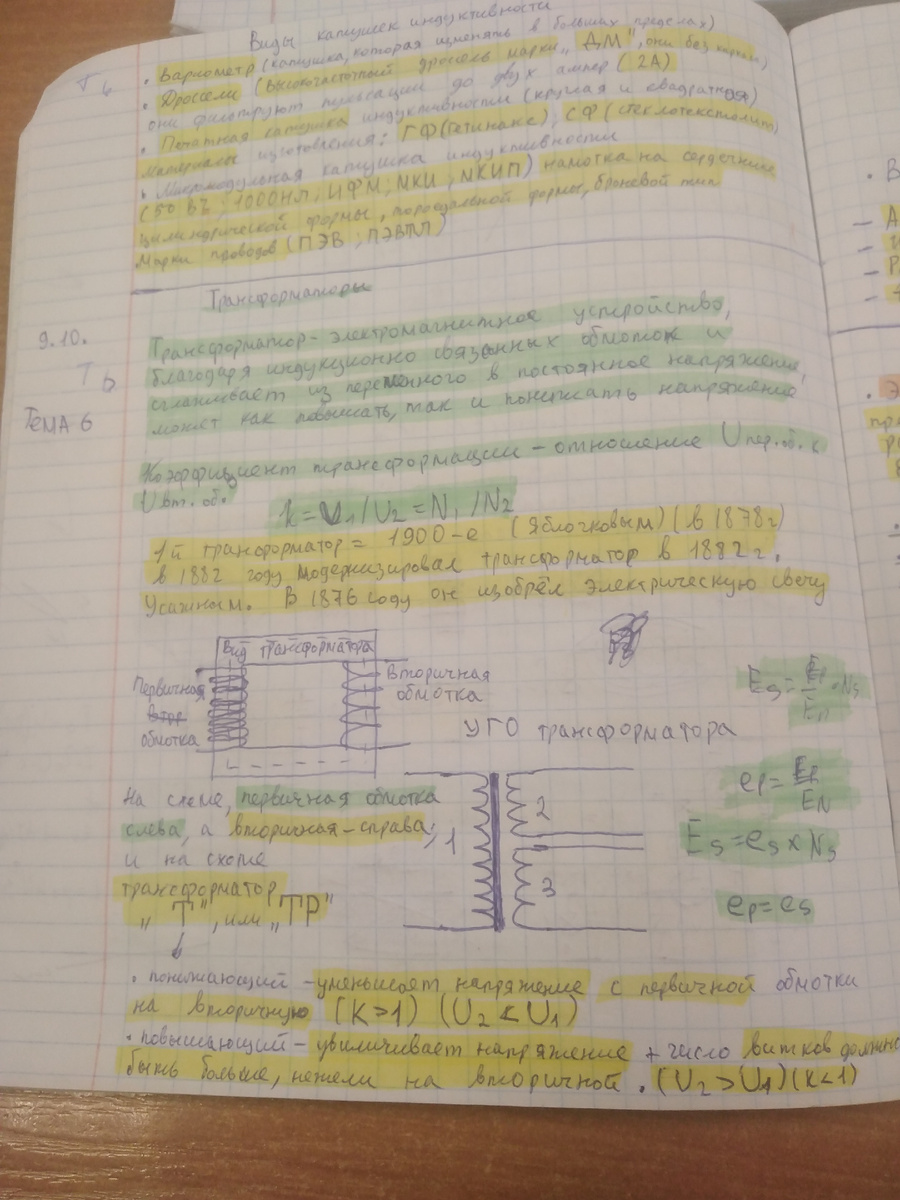 Виды катушек индуктивности
• Вариометр (катушка, которая изменять в больших пределах)
• Дроссели (высокочастотный дроссель марки „ДМ", они без корпуса)
они фильтруют пульсации до двух ампер (2А)
• Печатная катушка индуктивности (круглая и квадратная)
материалы изготовления: ГФ(Гетинакс); СФ(стеклотекстолит)
• Микромодульная катушка индуктивности
(50 ВЧ; 1000НЛ; ИФМ; МКИ; NКИП) намотка на сердечник
цилиндрической формы, тороидальной формы, броневой тип
Марки проводов (ПЭВ; ПЭВТЛ)
Трансформаторы
9.10.
Тема 6
Трансформатор - электромагнитное устройство,
благодаря индукционно связанных обмоток и
сглаживает из переменного в постоянное напряжение,
может как повышать, так и понижать напряжение
Коэффициент трансформации - отношение U пер. об. к
U вт. об.
k = U1 / U2 = N1 / N2
1й трансформатор = 1900-е (Яблочковым) (в 1878г)
в 1882 году модернизировал трансформатор в 1882 г.
Усагиным. В 1876 году он изобрёл электрическую свечу
Вид трансформатора
Первичная
обмотка
Вторичная
обмотка
УГО трансформатора
1
2
3
Es = Ep/Ep · Ns
ep = Ep/EN
Es = es x Ns
ep = es
На схеме, первичная обмотка
слева, а вторичная - справа;
и на схеме
трансформатор
„Т", или „ТР"
• понижающий - уменьшает напряжение с первичной обмотки
на вторичную (K>1) (U2 < U1)
• повышающий - увиличивает напряжение + число витков должно
быть больше, нежели на вторичной. (U2 > U1) (K<1)